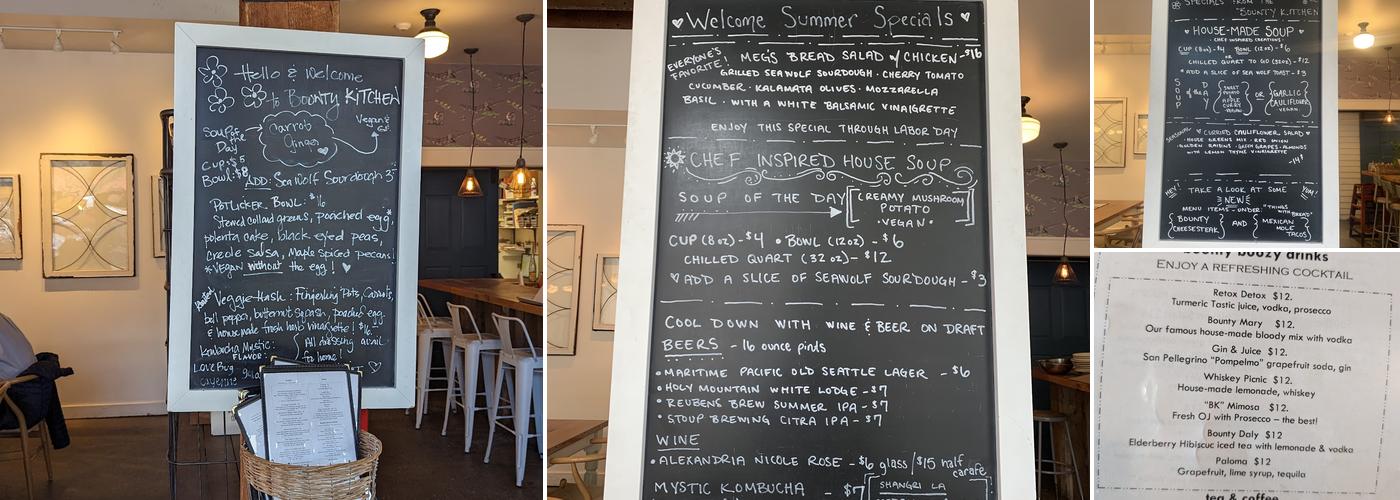 Hello & Welcome
to BOUNTY KITCHEN
Soup of the
Day
Carrot
Ginger
Vegan &
GF
Cup: $5
Bowl: $8
ADD: Sea Wolf Sourdough 3-
POTLICKER BOWL: $16
Stewed collard greens, poached egg*,
polenta cake, black eyed peas,
Creole Salsa, Maple spiced pecans!
*VEGAN without the egg!
Veggie Hash: Fingerling Pots, Carrots,
bell pepper, butternut squash, poached egg
& housemade fresh herb vinaigrette! $16-
Kombucha Mystic:
FLAVOR:
Love Bug
All dressing avail
to home!
Welcome Summer Specials
EVERYONE'S
FAVORITE!
MEG'S BREAD SALAD w/ CHICKEN - $16
GRILLED SEAWOLF SOURDOUGH · CHERRY TOMATO
CUCUMBER · KALAMATA OLIVES · MOZZARELLA
BASIL · WITH A WHITE BALSAMIC VINAIGRETTE
ENJOY THIS SPECIAL THROUGH LABOR DAY
CHEF INSPIRED HOUSE SOUP
SOUP OF THE DAY
CREAMY MUSHROOM
POTATO
· VEGAN ·
CUP (8 oz) - $4 • BOWL (12 oz) - $6
CHILLED QUART (32 oz) - $12
ADD A SLICE OF SEAWOLF SOURDOUGH - $3
COOL DOWN WITH WINE & BEER ON DRAFT
BEERS - 16 ounce pints
• MARITIME PACIFIC OLD SEATTLE LAGER - $6
• HOLY MOUNTAIN WHITE LODGE - $7
• REUBENS BREW SUMMER IPA - $7
• STOUP BREWING CITRA IPA - $7
WINE
• ALEXANDRIA NICOLE ROSE - $6 glass / $15 half
carafe
MYSTIC KOMBUCHA - $7
SHANGRI LA
SPECIALS FROM THE
BOUNTY KITCHEN
HOUSE-MADE SOUP
· CHEF INSPIRED CREATIONS ·
CUP (8oz) - $4 BOWL (12oz) - $6
CHILLED QUART TO GO (32oz) - $12
* ADD A SLICE OF SEA WOLF TOAST - $3
SOUP
of the
DAY
SWEET
POTATO
APPLE
CURRY
VEGAN
OR
GARLIC
CAULIFLOWER
VEGAN
SEASONAL
CURRIED CAULIFLOWER SALAD
HOUSE GREENS MIX · RED ONION
GOLDEN RAISINS · GREEN GRAPES · ALMONDS
WITH LEMON THYME VINAIGRETTE
- 14$
HEY!
TAKE A LOOK AT SOME
YOU!
NEW
MENU ITEMS - UNDER "THINGS
WITH BREAD"
BOUNTY
CHEESESTEAK
AND
MEXICAN
MOLE
TACOS
bounty boozy drinks
ENJOY A REFRESHING COCKTAIL
Retox Detox $12.
Turmeric Tastic juice, vodka, prosecco
Bounty Mary $12.
Our famous house-made bloody mix with vodka
Gin & Juice $12.
San Pellegrino "Pompelmo" grapefruit soda, gin
Whiskey Picnic $12.
House-made lemonade, whiskey
"BK" Mimosa $12.
Fresh OJ with Prosecco – the best!
Bounty Daly $12
Elderberry Hibiscuc iced tea with lemonade & vodka
Paloma $12
Grapefruit, lime syrup, tequila
tea & coffee